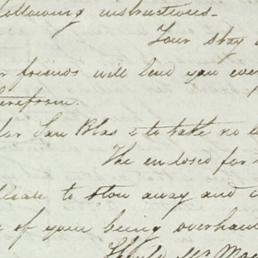 following instructions.
Your stay
friends will lead you
therefrom.
San Blas & to take no
The enclosed for
to stow away and
of your being overhaul